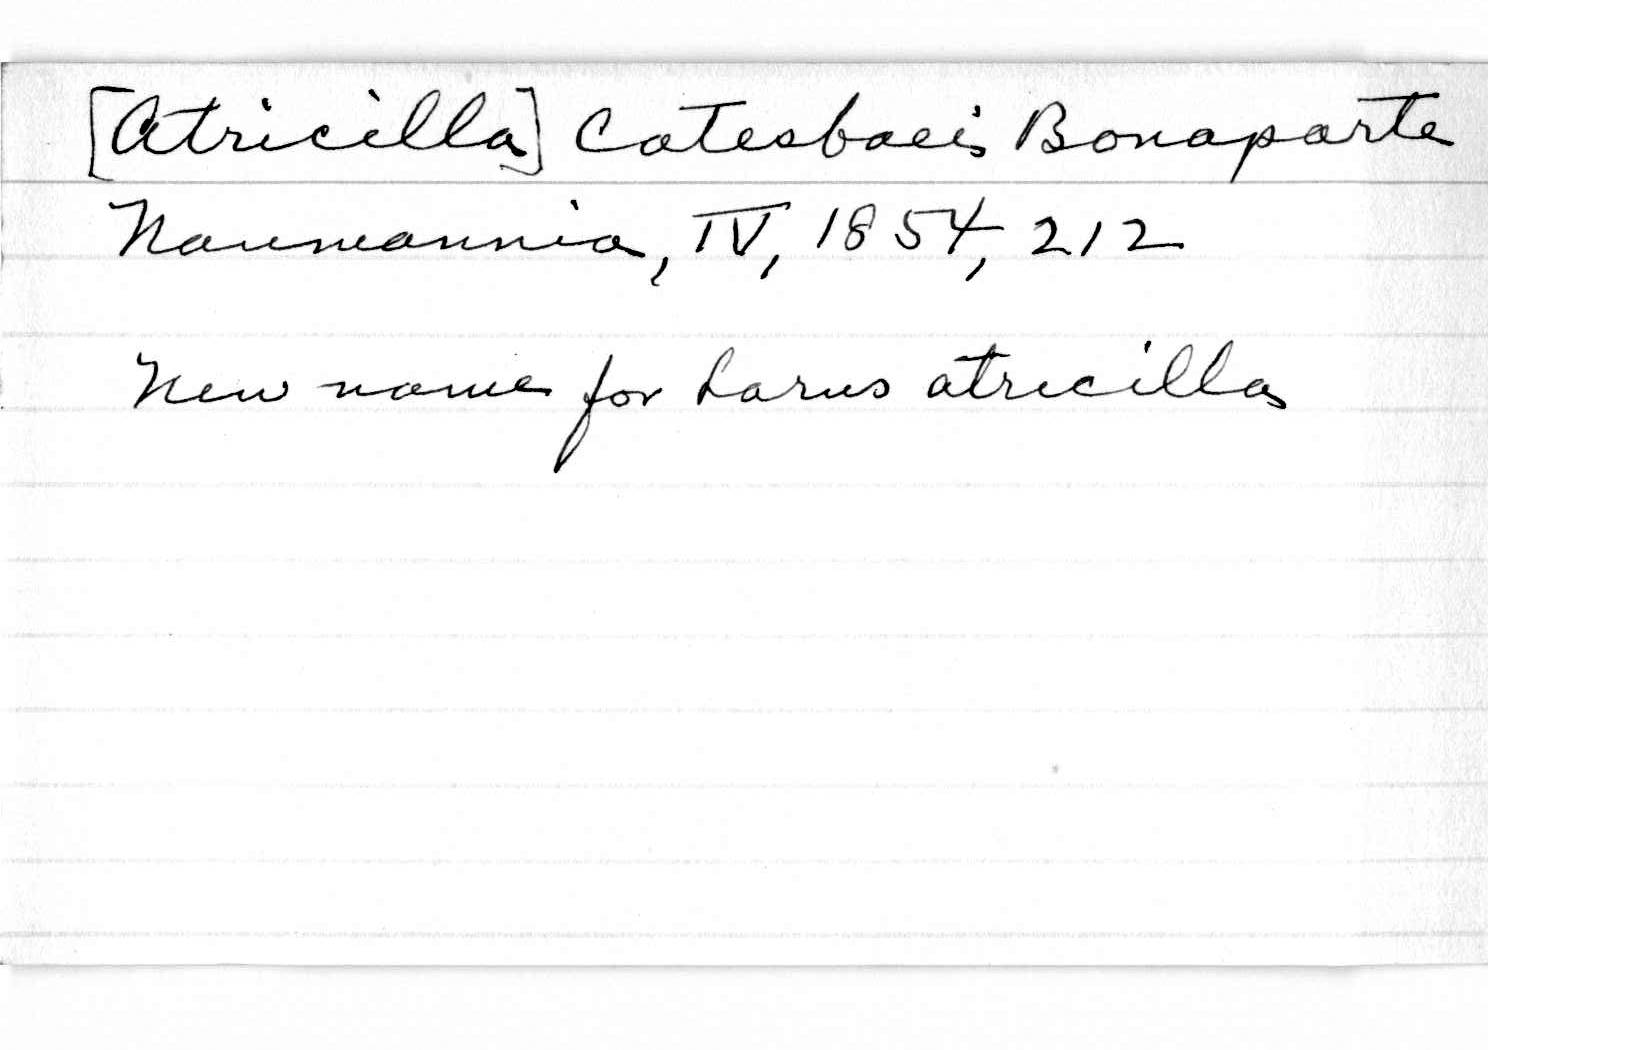 [Atricilla] Catesbaei Bonaparte
Naumannia, IV, 1854, 212
New name for Larus atricilla